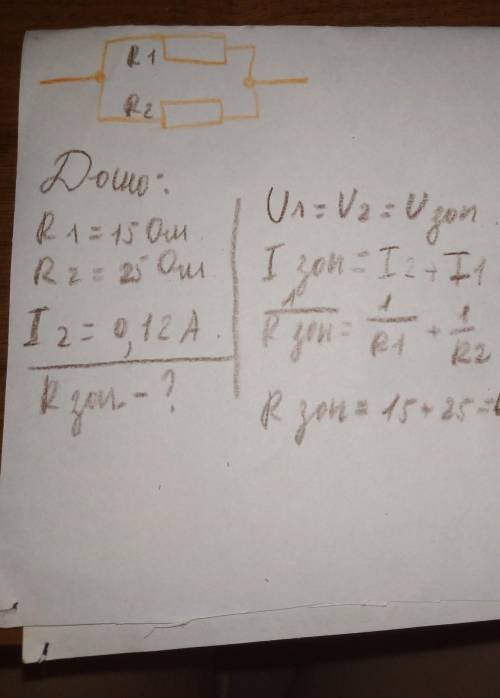 R1
R2
Дано:
R1 = 15 Ом.
R2 = 25 Ом
I2 = 0,12 А.
Rзап - ?
U1 = U2 = Uзоп.
Iзоп = I2 + I1
1/Rзоп = 1/R1 + 1/R2
Rзоп = 15 + 25 =